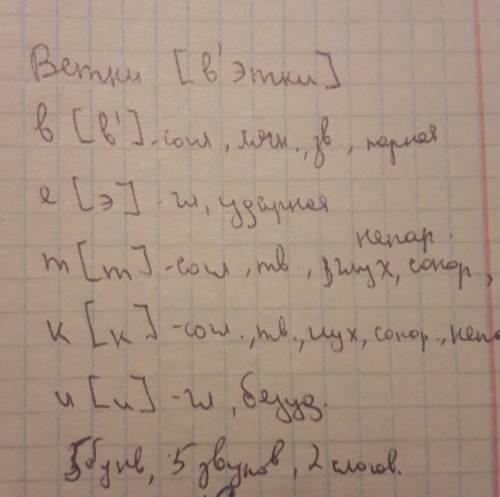 Ветки [в'этки]
в [в'] - согл, мягк., зв, парная
е [э] - гл, ударная
непар.
т [т] - согл, тв., глух, сонор.,
к [к] - согл., тв., глух, сонор., непа
и [и] - гл, безуд.
5 букв, 5 звуков, 2 слогов.